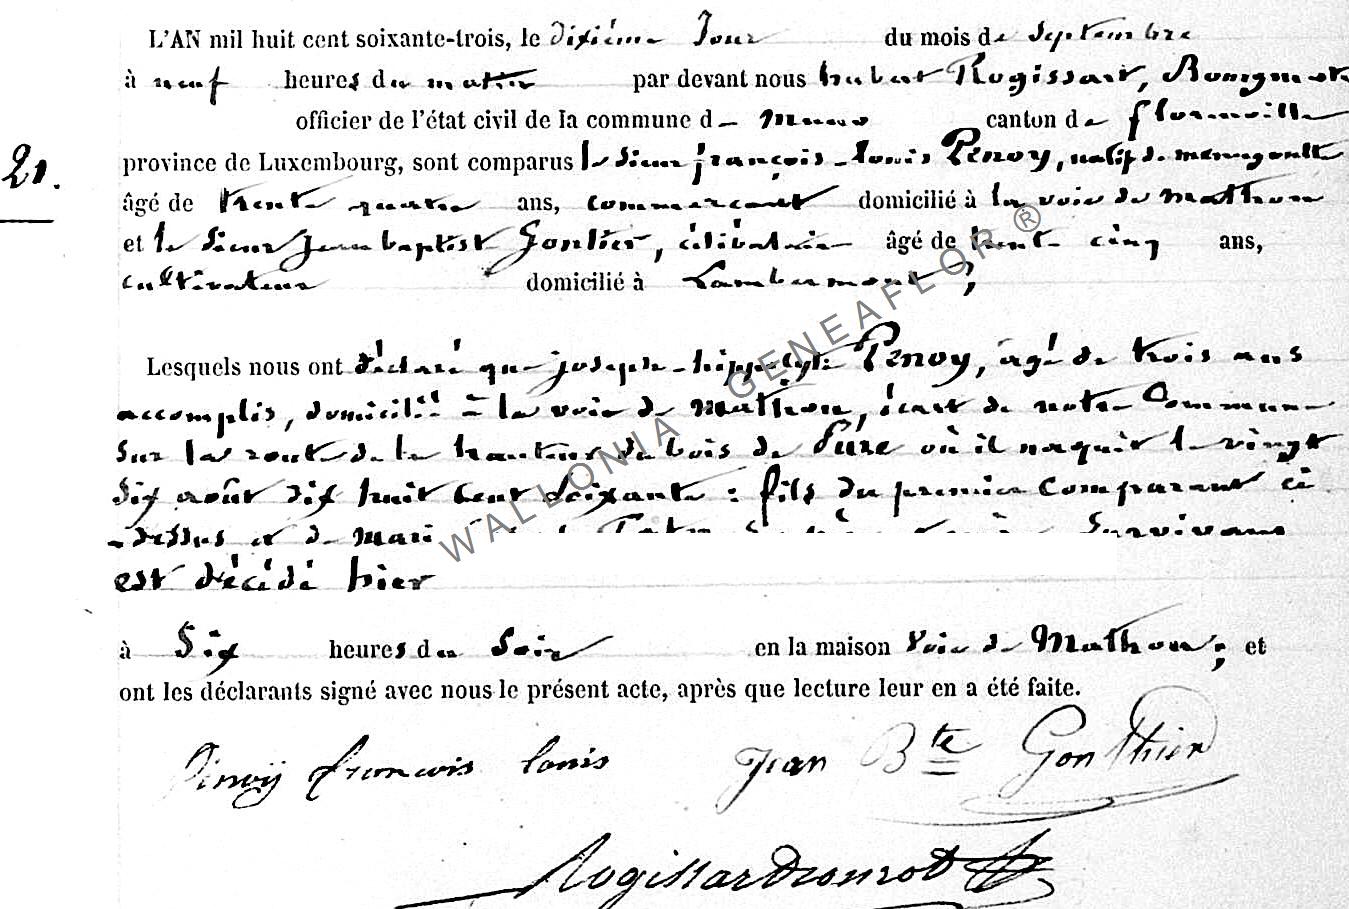 L'AN mil huit cent soixante-trois, le dixiéme Jour du mois de Septembre
à neuf heures du matin par devant nous hubert Rogissart, Bourgmestre
officier de l'état civil de la commune de Muno canton de florenville
21.
province de Luxembourg, sont comparus le Sieur françois-louis Pinoy, natif de
âgé de trente quatre ans, commerçant domicilié à la voie de Mathon
et le Sieur Jean baptiste Gontier, célibataire âgé de trente cinq ans,
cultivateur domicilié à Lambermont ;
Lesquels nous ont déclaré que joseph-hippolyte Pinoy, âgé de trois ans
accomplis, domicilié à la voie de Mathon, écart de notre Commune
Sur la route de la hauteur du bois de Pure où il naquit le vingt
Six août dix huit cent Soixante : fils du premier Comparant ci
-dessus et de Survivans
est décédé hier
à Six heures du Soir en la maison voie de Mathon ; et
ont les déclarants signé avec nous le présent acte, après que lecture leur en a été faite.
Pinoÿ francois louis Jean Bte Gonthier
WALLONIA GENEAFLOR ®